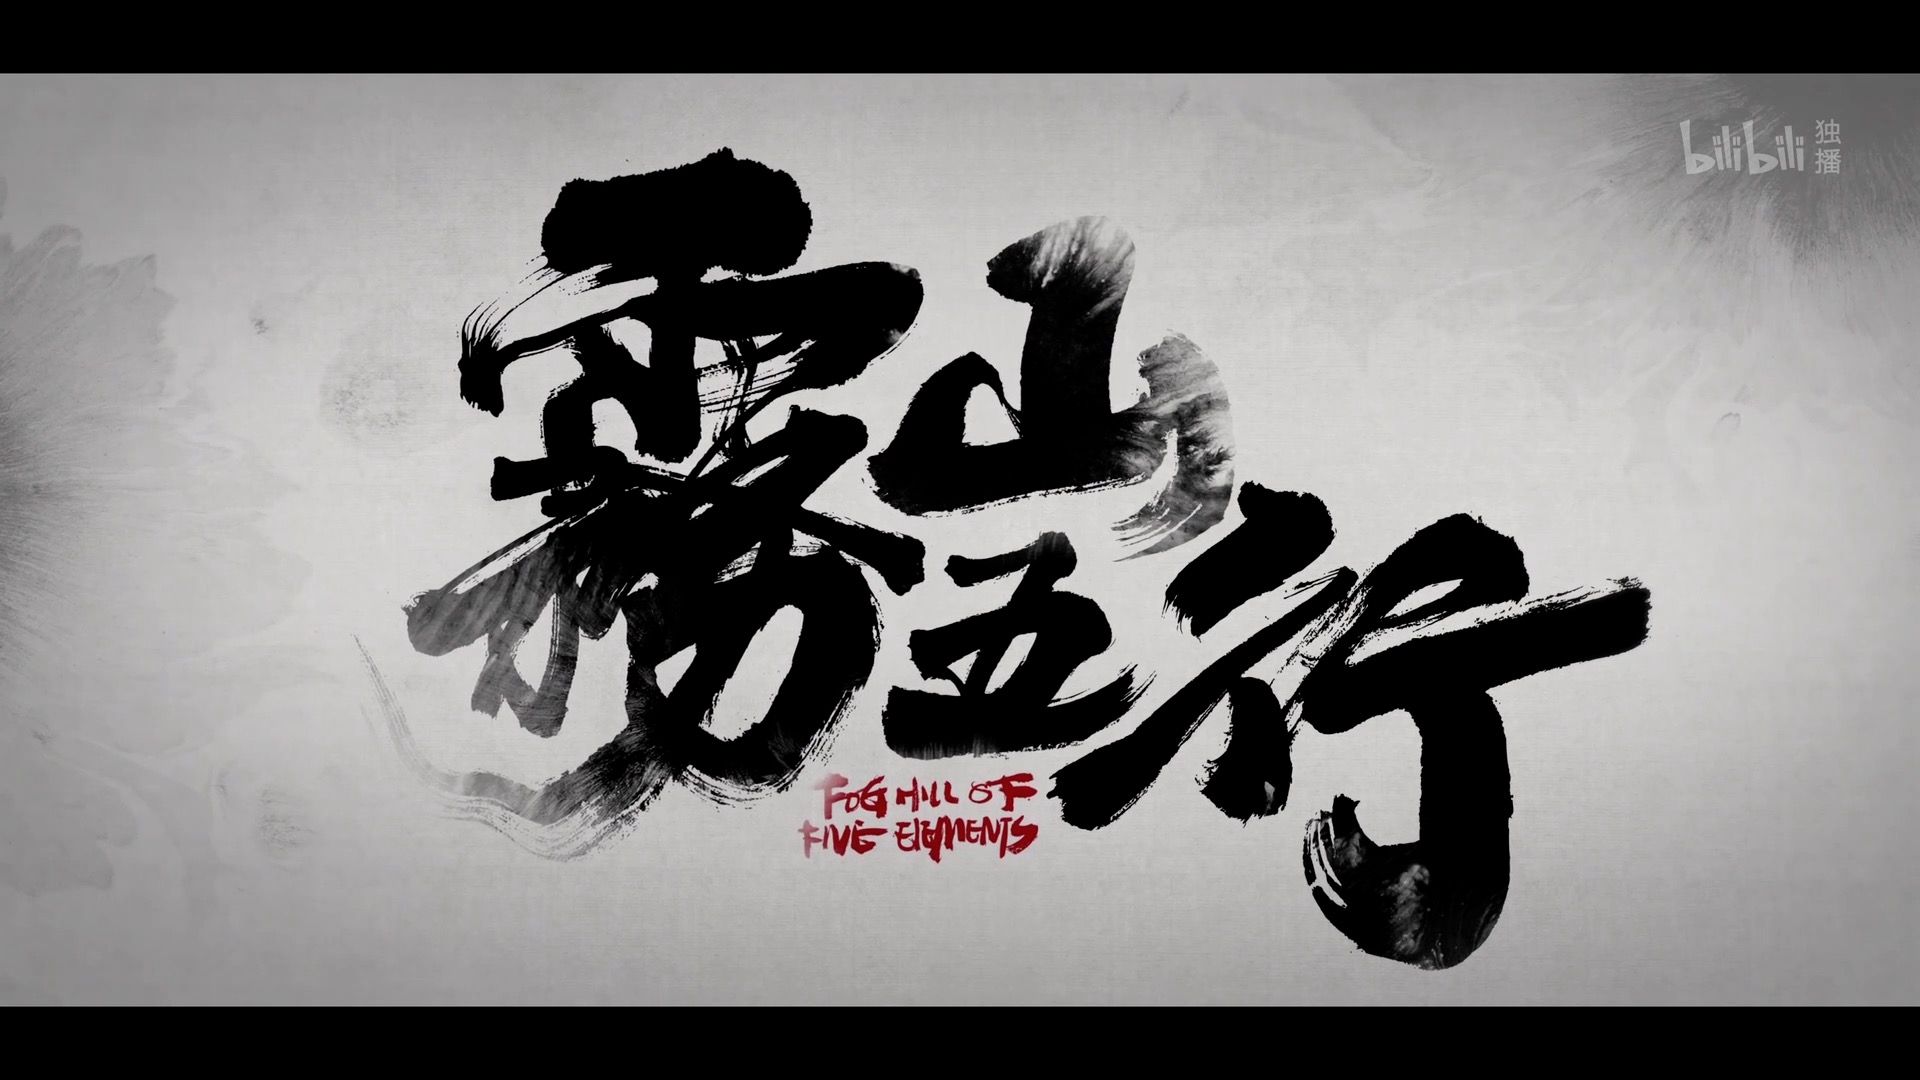 bilibili 独播
霧山
五行
FOG HILL OF
FIVE ELEMENTS